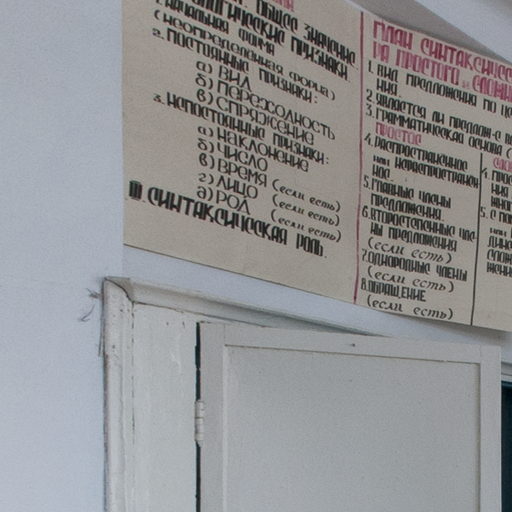 общее значение.
Морфологические признаки
1. Начальная форма
(неопределённая форма)
2. Постоянные признаки:
а) вид
б) переходность
в) спряжение
3. Непостоянные признаки:
а) наклонение
б) число
в) время (если есть)
г) лицо (если есть)
д) род (если есть)
III. Синтаксическая роль.
План синтаксичес
ра простого и слож
1. Вид предложения по це
ния.
2. Является ли предлож-е
3. Грамматическая основа (
простое
4. Распространённое
или нераспространен
ное.
5. Главные члены
предложения.
6. Второстепенные чле-
ны предложения
(если есть)
7. Однородные члены
(если есть)
8. Обращение
(если есть)
сло
4. Прос
5. С по
или